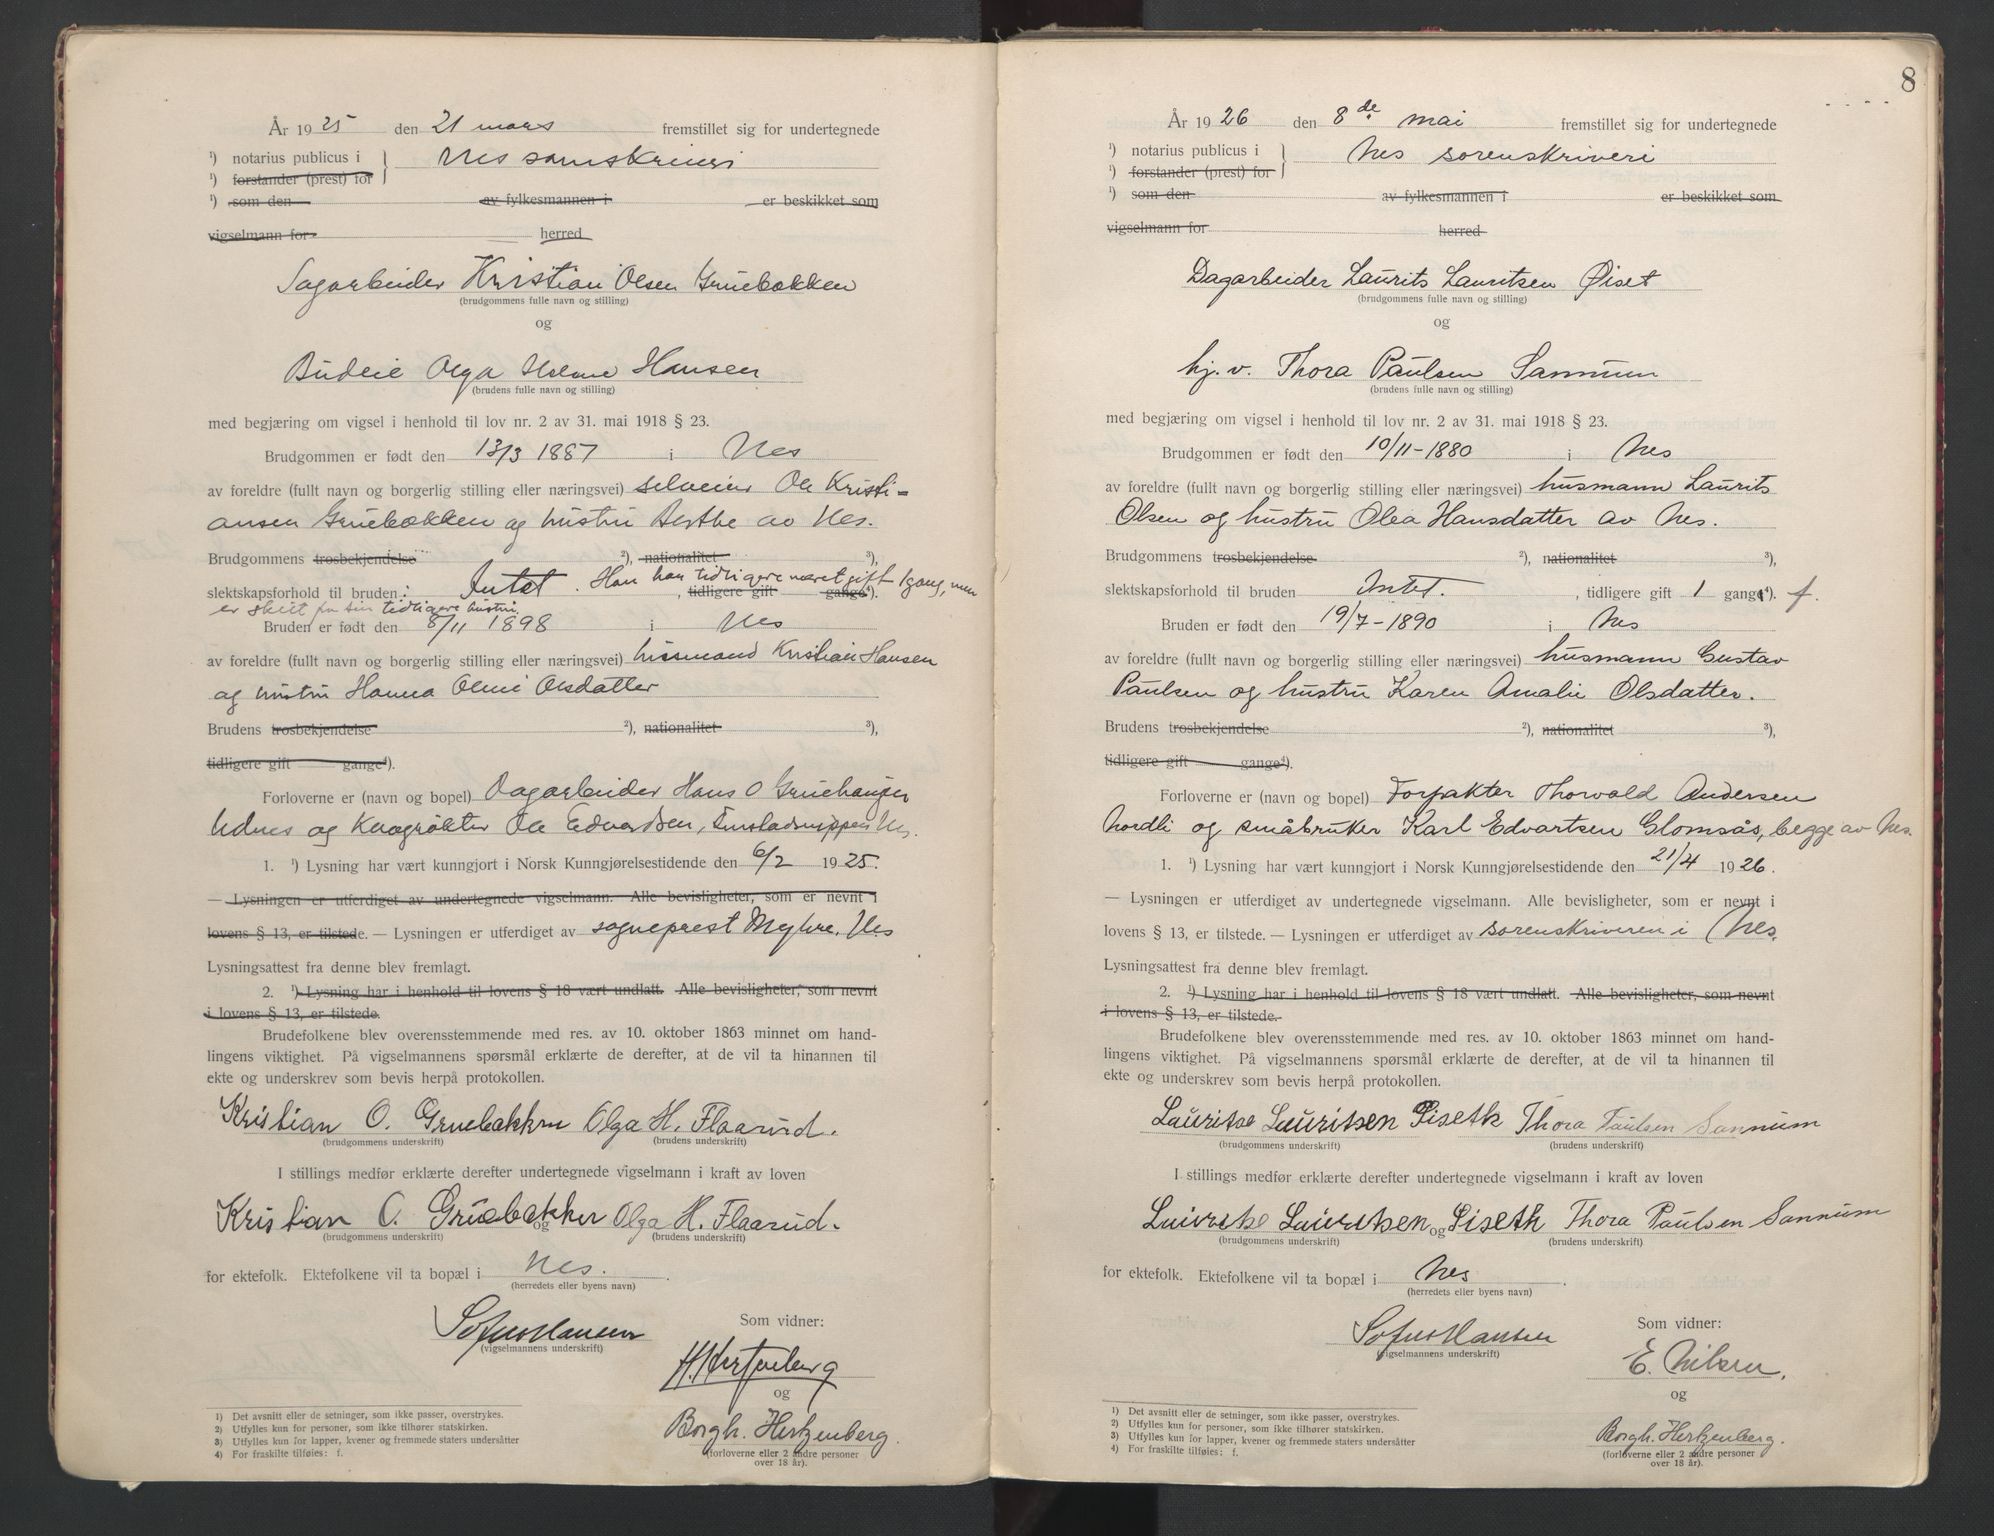 År 1925 den 21 mars fremstillet sig for undertegnede
¹) notarius publicus i } Nes sorenskriveri
¹) forstander (prest) for
¹) som den av fylkesmannen i er beskikket som
vigselmann for herred
Sagarbeider Kristian Olsen Gruebækken
(brudgommens fulle navn og stilling)
og
Budeie Olga Helene Hansen
(brudens fulle navn og stilling)
med begjæring om vigsel i henhold til lov nr. 2 av 31. mai 1918 § 23.
Brudgommen er født den 13/3 1887 i Nes
av foreldre (fullt navn og borgerlig stilling eller næringsvei) selveier Ole Kristi=
ansen Gruebækken og hustru Berthe av Nes.
Brudgommens trosbekjendelse ²), nationalitet ³),
slektskapsforhold til bruden: Intet. Han har tidligere været gift 1 gang, men , tidligere gift gange⁴).
er skilt fra sin tidligere hustru.
Bruden er født den 8/11 1898 i Nes
av foreldre (fullt navn og borgerlig stilling eller næringsvei) husmand Kristian Hansen
og hustru Hanna Oline Olsdatter
Brudens trosbekjendelse ²), nationalitet ³),
tidligere gift gange⁴).
Forloverne er (navn og bopel) Dagarbeider Hans O Gruehaugen
Udnes og Ole Edvardsen, Nes.
1. ¹) Lysning har vært kunngjort i Norsk Kunngjørelsestidende den 6/2 1925.
— Lysningen er utferdiget av undertegnede vigselmann. Alle bevisligheter, som er nevnt i
lovens § 13, er tilstede. — Lysningen er utferdiget av sogneprest Myhre, Nes
Lysningsattest fra denne blev fremlagt.
2. ¹) Lysning har i henhold til lovens § 18 vært undlatt. Alle bevisligheter, som nevnt
i lovens § 13, er tilstede.
Brudefolkene blev overensstemmende med res. av 10. oktober 1863 minnet om hand-
lingens viktighet. På vigselmannens spørsmål erklærte de derefter, at de vil ta hinannen til
ekte og underskrev som bevis herpå protokollen.
Kristian O. Gruebakken Olga H. Flaarud.
(brudgommens underskrift) (brudens underskrift)
I stillings medfør erklærte derefter undertegnede vigselmann i kraft av loven
Kristian O. Gruebakken og Olga H. Flaarud.
(brudgommens underskrift) (brudens underskrift)
for ektefolk. Ektefolkene vil ta bopæl i Nes.
(herredets eller byens navn)
Sofus Hansen
(vigselmannens underskrift)
Som vidner:
H. Hertzenberg
og
Borgh. Hertzenberg.
(forloverne eller 2 andre personer
over 18 år).
¹) Det avsnitt eller de setninger, som ikke passer, overstrykes.
²) Utfylles kun for personer, som ikke tilhører statskirken.
³) Utfylles kun for lapper, kvener og fremmede staters undersåtter
⁴) For fraskilte tilføies: f.
8
År 1926 den 8de mai fremstillet sig for undertegnede
¹) notarius publicus i } Nes sorenskriveri
¹) forstander (prest) for
¹) som den av fylkesmannen i er beskikket som
vigselmann for herred
Dagarbeider Laurits Lauritsen Øiset
(brudgommens fulle navn og stilling)
og
hj. v. Thora Paulsen Sannum
(brudens fulle navn og stilling)
med begjæring om vigsel i henhold til lov nr. 2 av 31. mai 1918 § 23.
Brudgommen er født den 10/11-1880 i Nes
av foreldre (fullt navn og borgerlig stilling eller næringsvei) husmann Laurits
Olsen og hustru Olea Hansdatter av Nes.
Brudgommens trosbekjendelse ²), nationalitet ³),
slektskapsforhold til bruden Intet. , tidligere gift 1 gang⁴). f.
Bruden er født den 19/7-1890 i Nes
av foreldre (fullt navn og borgerlig stilling eller næringsvei) husmann Gustav
Paulsen og hustru Karen Amalie Olsdatter.
Brudens trosbekjendelse ²), nationalitet ³),
tidligere gift gange⁴).
Forloverne er (navn og bopel) Forpakter Thorvald Andersen
Nordli og småbruker Karl Edvartsen Glomsås, begge av Nes.
1. ¹) Lysning har vært kunngjort i Norsk Kunngjørelsestidende den 21/4 1926.
— Lysningen er utferdiget av undertegnede vigselmann. Alle bevisligheter, som er nevnt i
lovens § 13, er tilstede. — Lysningen er utferdiget av sorenskriveren i Nes.
Lysningsattest fra denne blev fremlagt.
2. ¹) Lysning har i henhold til lovens § 18 vært undlatt. Alle bevisligheter, som nevnt
i lovens § 13, er tilstede.
Brudefolkene blev overensstemmende med res. av 10. oktober 1863 minnet om hand-
lingens viktighet. På vigselmannens spørsmål erklærte de derefter, at de vil ta hinannen til
ekte og underskrev som bevis herpå protokollen.
Lauritse Lauritsen Øiseth Thora Paulsen Sannum
(brudgommens underskrift) (brudens underskrift)
I stillings medfør erklærte derefter undertegnede vigselmann i kraft av loven
Lauritse Lauritsen og Øiseth Thora Paulsen Sannum
(brudgommens underskrift) (brudens underskrift)
for ektefolk. Ektefolkene vil ta bopæl i Nes.
(herredets eller byens navn)
Sofus Hansen
(vigselmannens underskrift)
Som vidner:
E. Nilsen.
og
Borgh. Hertzenberg.
(forloverne eller 2 andre personer
over 18 år).
¹) Det avsnitt eller de setninger, som ikke passer, overstrykes.
²) Utfylles kun for personer, som ikke tilhører statskirken.
³) Utfylles kun for lapper, kvener og fremmede staters undersåtter
⁴) For fraskilte tilføies: f.